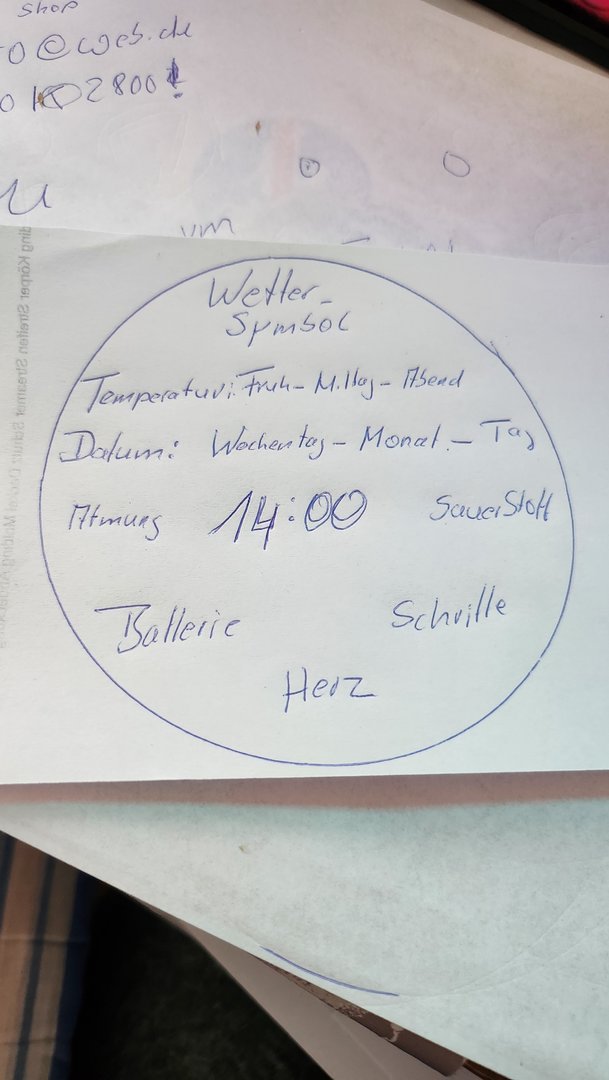 shop
o@web.de
2800!
u
um
Wetter-
Symbol
Temperatur: Früh - Mittag - Abend
Datum: Wochentag - Monat - Tag
Atmung 14:00 Sauerstoff
Batterie Schritte
Herz